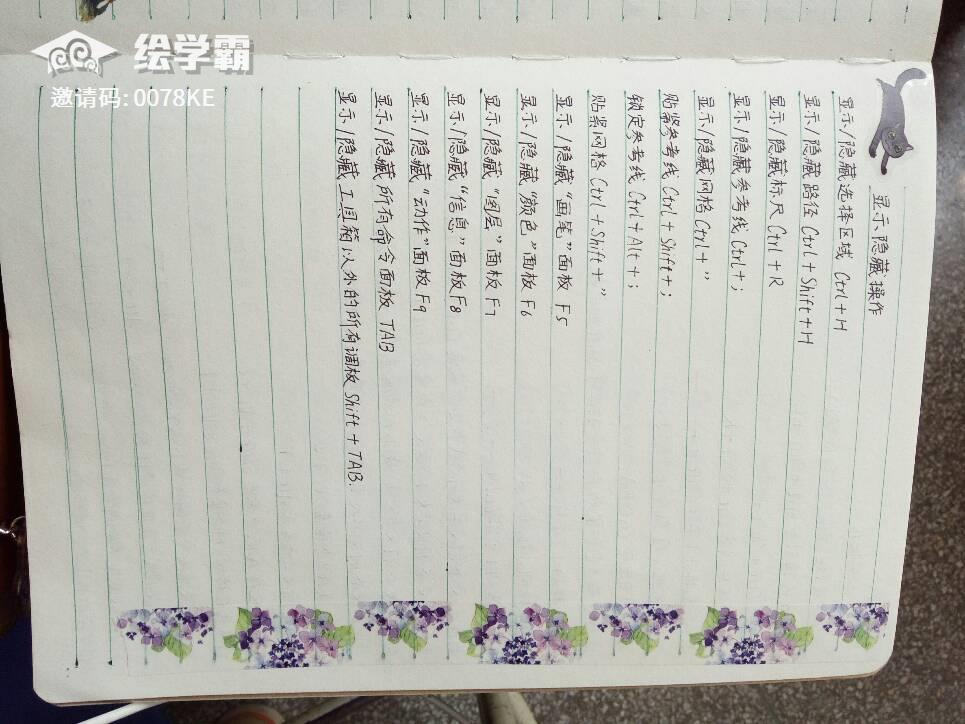 绘学霸
邀请码: 0078KE
显示隐藏操作
显示/隐藏选择区域 Ctrl+H
显示/隐藏路径 Ctrl+Shift+H
显示/隐藏标尺 Ctrl+R
显示/隐藏参考线 Ctrl+;
显示/隐藏网格 Ctrl+”
贴紧参考线 Ctrl+Shift+;
锁定参考线 Ctrl+Alt+;
贴紧网格 Ctrl+Shift+”
显示/隐藏“画笔”面板 F5
显示/隐藏“颜色”面板 F6
显示/隐藏“图层”面板 F7
显示/隐藏“信息”面板 F8
显示/隐藏“动作”面板 F9
显示/隐藏所有命令面板 TAB
显示/隐藏工具箱以外的所有调板 Shift+TAB.